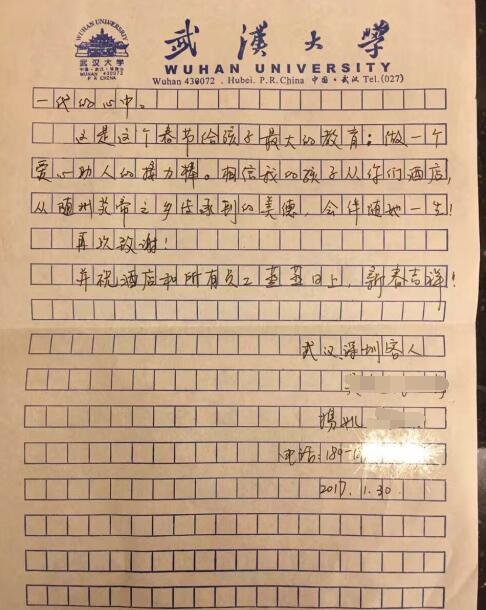 WUHAN UNIVERSITY
武汉大学
中国·武汉·珞珈山
WUHAN 430072
P.R CHINA
武漢大學
WUHAN UNIVERSITY
Wuhan 430072 . Hubei. P.R.China 中国·武汉 Tel.(027)
一代的心中。
这是这个春节给孩子最大的教育:做一个
爱心助人的接力棒。相信我的孩子从你们酒店,
从随州炎帝之乡传承到的美德,会伴随她一生!
再次致谢!
并祝酒店和所有员工蒸蒸日上,新春吉祥!
武汉、深圳客人
电话:180-1
2017.1.30.